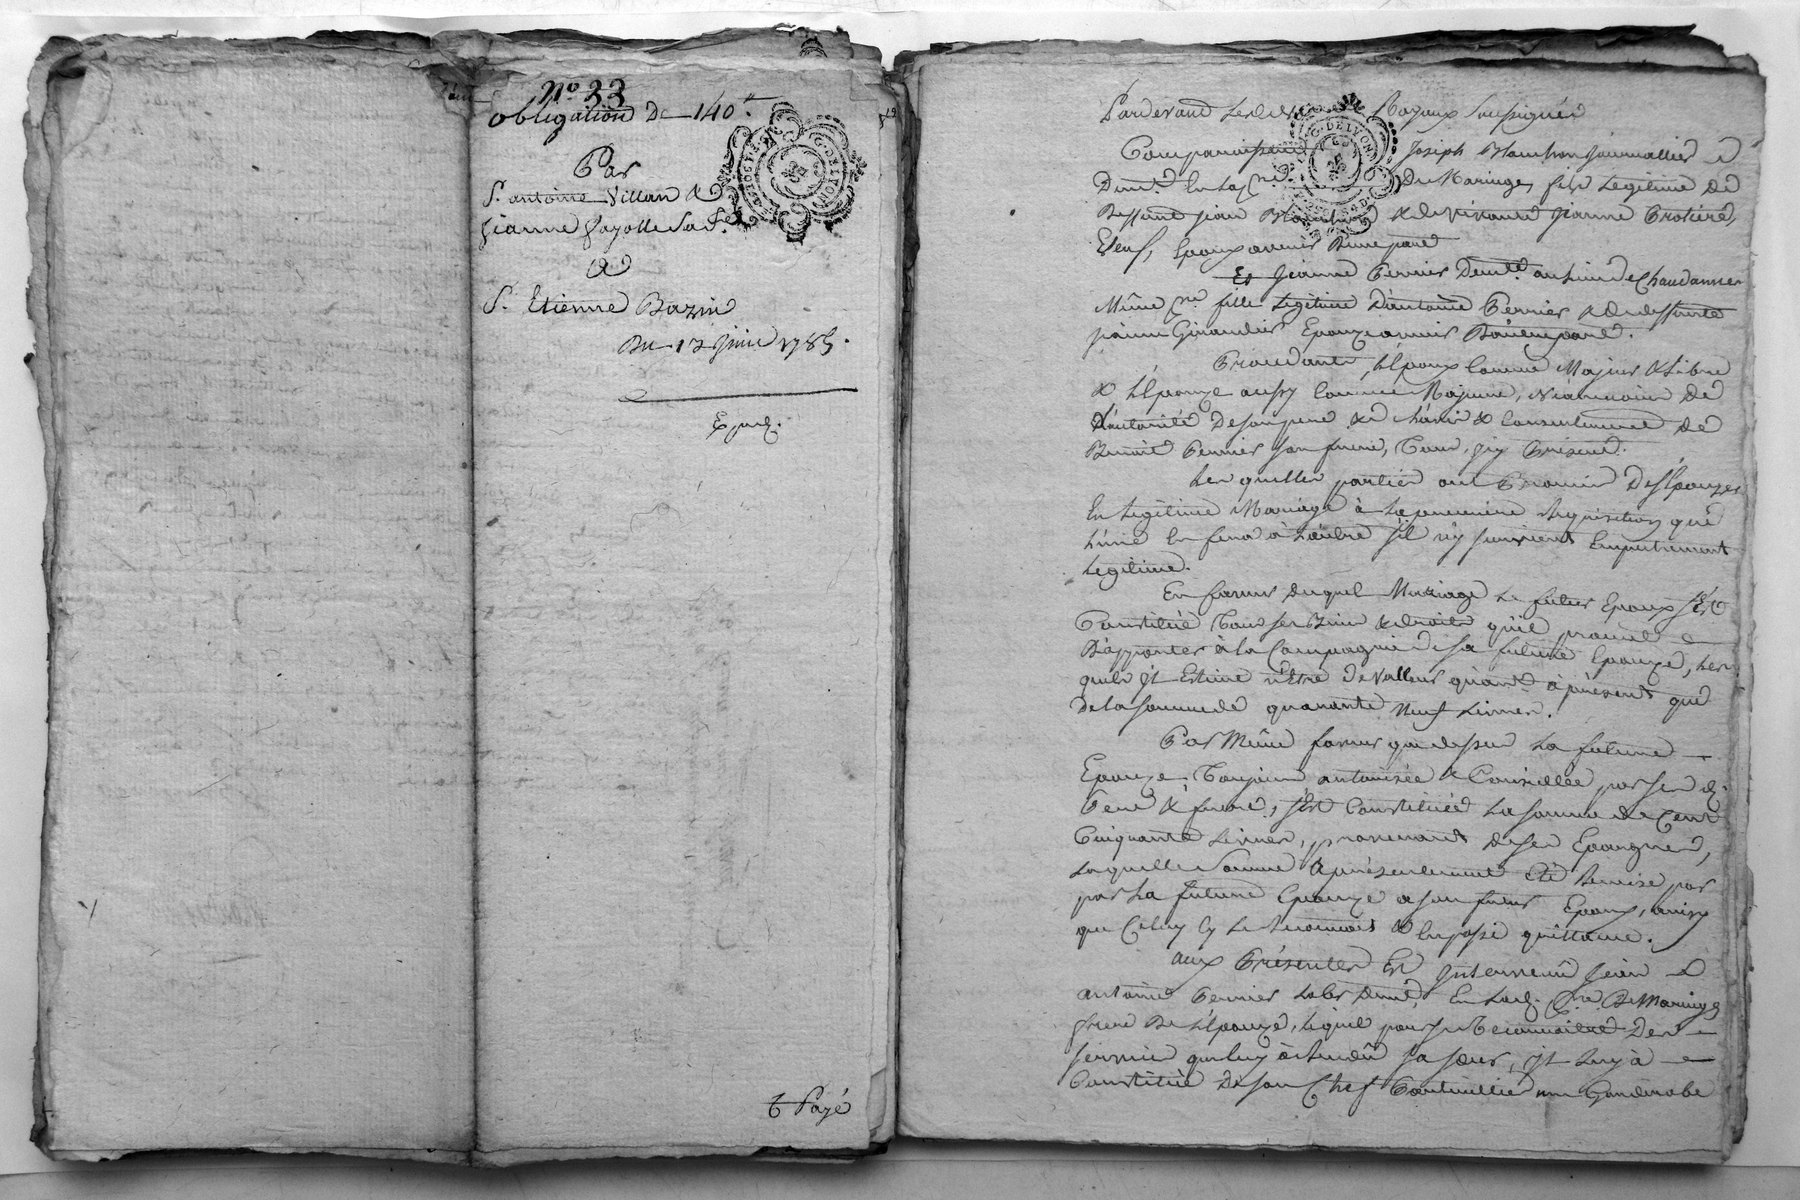 N.º 33
Obligation De 140.ᵗᵗ
Par
S.ʳ antoine Villard &
Jeanne fayolle Sa f.ᵉ
A
S.ʳ Etienne Bazin
Du 12 juin 1785.
Exped.
Payé
G. DE LYON
Pardevant Les Nres Royaux Soussignés
Comparaissent Joseph journallier
Demt. En La psse. De Maringes fils Legitime De
Deffunt jean & de vivante jeanne
Epoux avenir D'une part
Et Jeanne Perrier Demte. au Lieu de Chaudannes
Même psse fille Legitime D'antoine Perrier & de deffunte
Epouze avenir D'autre part.
Procedants, L'Epoux Comme Majeur & Libre
& L'Epouze aussy Comme Majeure, Néanmoins De
L'autorité De son pere & De L'avis & Consentement De
Benoit Perrier son frere, Tous icy Présents.
Les quelles parties ont Promis De S'Epouzer
En Legitime Mariage à La premiere Requisition que
L'une En fera à L'autre s'il n'y survient Empechement
Legitime.
En faveur Duquel Mariage Le futur Epoux S'Est
Constitué Tous ses Biens & droits qu'il promet
D'apporter à la Compagnie De sa future Epouze, Les
quels Il Estime n'Etre De valleur quant à présent que
De la somme de quarante Neuf Livres.
Par Même faveur que dessus La future
Epouze Toujours autorisée & Conseillée par ses d.
Pere & frere, s'Est Constituée La somme de Cent
Cinquante Livres, provenant De ses Epargnes,
Laquelle Somme a présentement Eté Remise par
par La future Epouze a son futur Epoux, ainsy
que Celuy cy Le Reconnoit & En passe quittance.
aux Présentes Est Intervenu Jean
antoine Perrier Labr Demt. En Lad. psse. De Maringes
frere De L'Epouze, Lequel pour Reconnaitre Des
services que luy à Rendû sa sœur, Il luy à
Constitué De son Chef Particullier un Garderobe